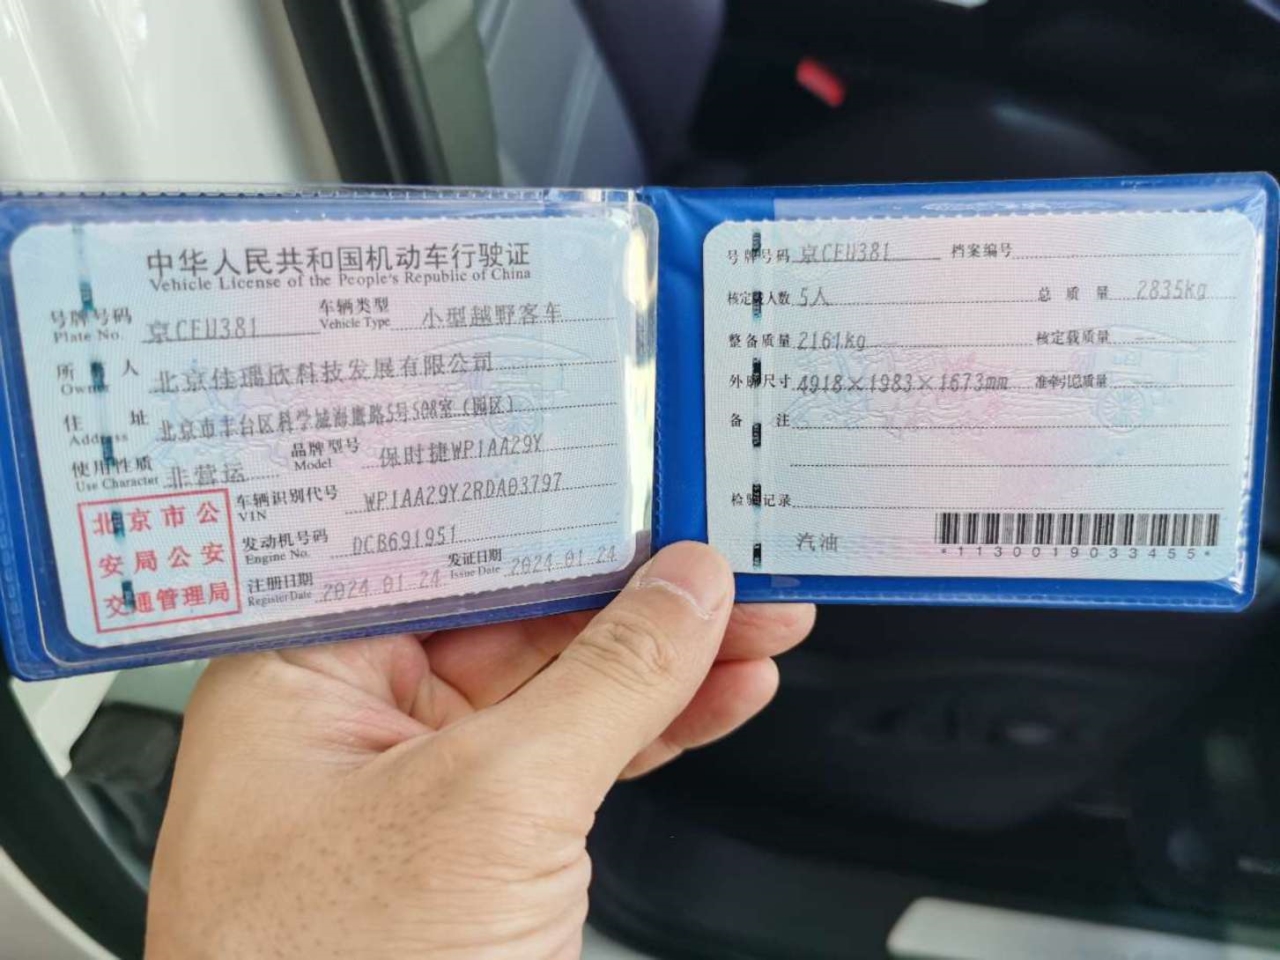 中华人民共和国机动车行驶证
Vehicle License of the People's Republic of China
号牌号码 京CFU381 车辆类型 小型越野客车
Plate No. Vehicle Type
所 人 北京佳瑞欣科技发展有限公司
Owner
住 址 北京市丰台区科学城海鹰路5号508室（园区）
Address
使用性质 非营运 品牌型号 保时捷WP1AA29Y
Use Character Model
北京市公
安局公安
交通管理局
车辆识别代号 WP1AA29Y2RDA03797
VIN
发动机号码 DCB691951
Engine No.
注册日期 2024-01-24 发证日期 2024-01-24
Register Date Issue Date
号牌号码 京CFU381 档案编号
核定载人数 5人 总 质 量 2835kg
整备质量 2161kg 核定载质量 --
外廓尺寸 4918×1983×1673mm 准牵引总质量 --
备 注
检验记录
汽油
*1130019033455*